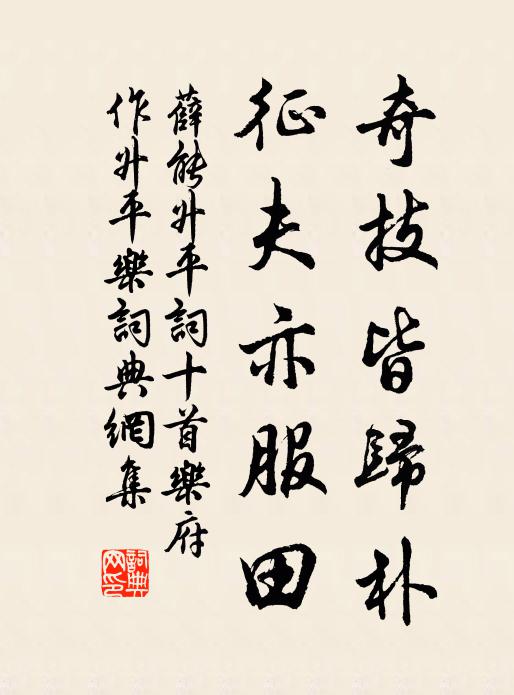 奇技皆歸朴
征夫亦服田
薛能升平詞十首樂府
作升平樂詞典網集
詞典
网印